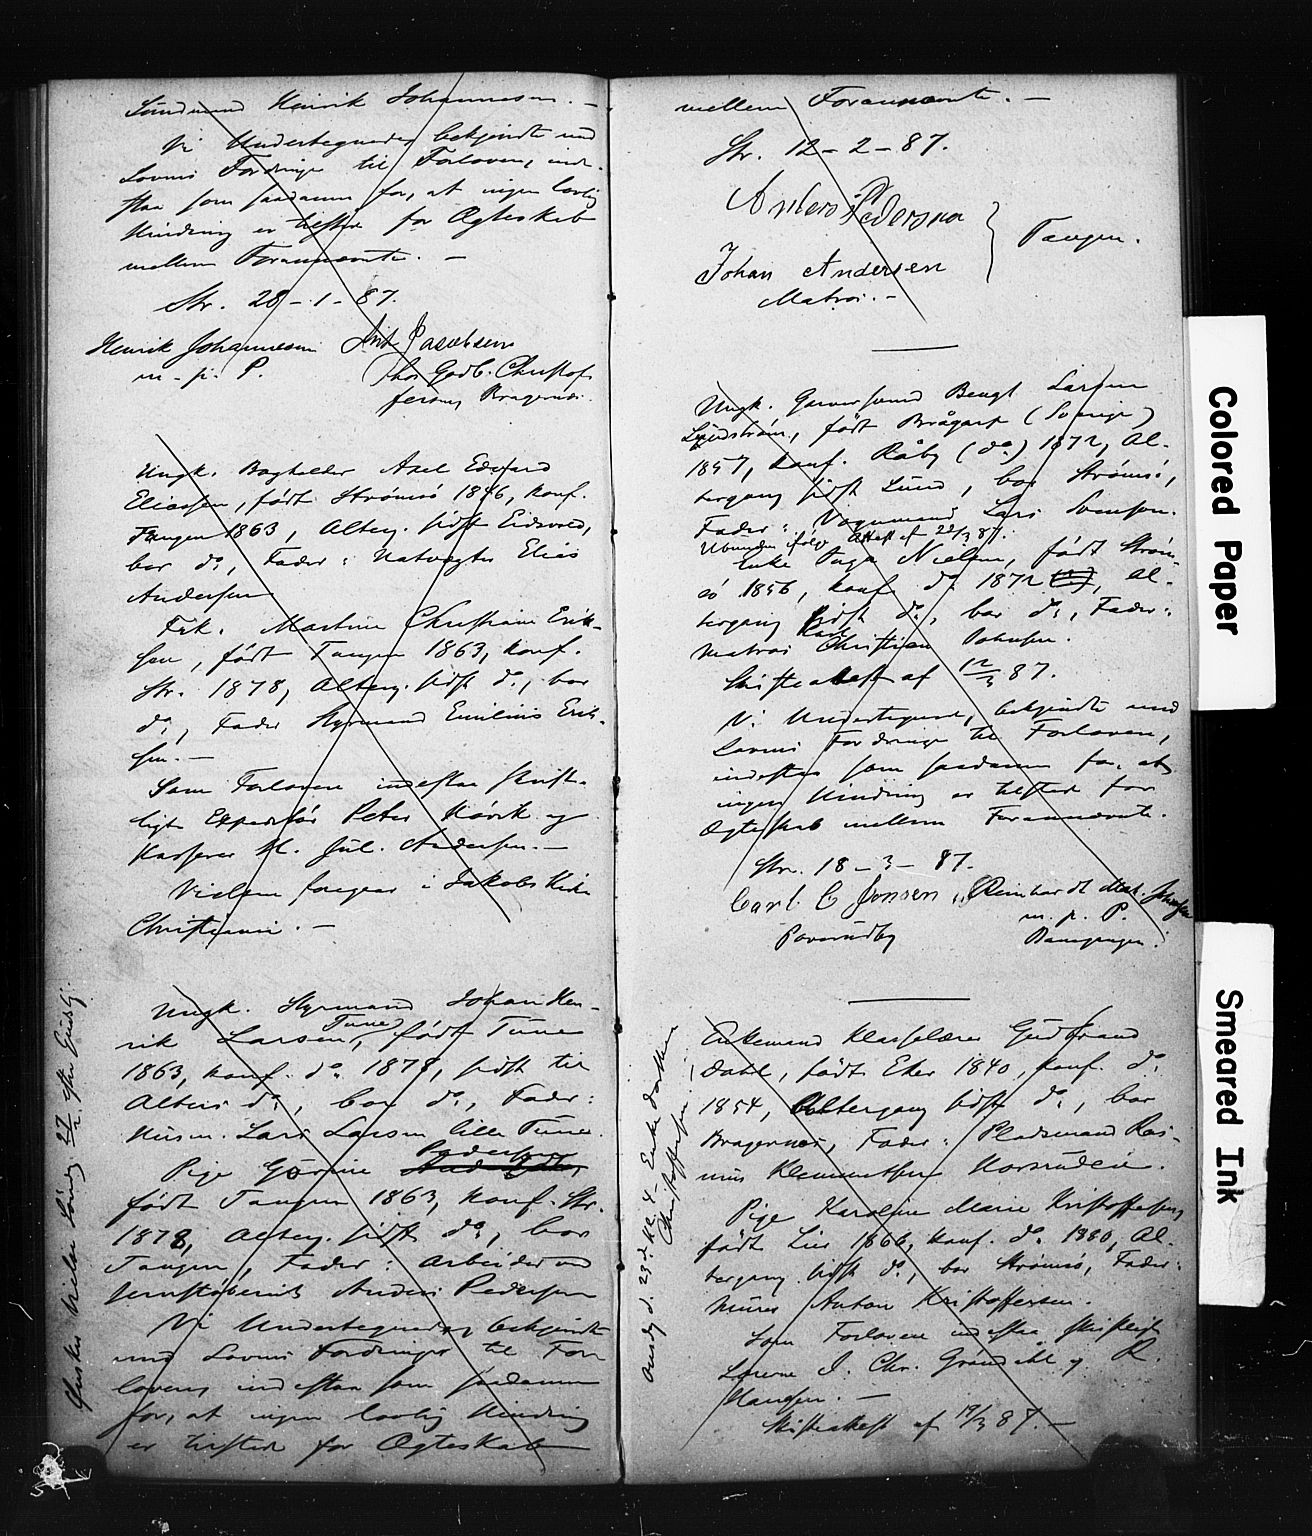 Henrik Johannesen. —
Vi Undertegnede, bekjendte med
Lovens Fordringer til Forlovere, inde-
staa som saadanne for, at ingen lovlig
Hindring er tilstede for Ægteskab
mellem Forannævnte. —
Str. 28 - 1 - 87.
Henrik Johannesen
m. p. P.
Ant Jacobsen
Thor Godb. Christof-
fersen, Bragernæs.
Ungk. Bogholder Axel Edvard
Eliassen, født Strømsø 1846, konf.
Tangen 1863, Alterg. sidst Eidsvold,
bor do, Fader: Natvægter Elias
Andersen
Frk. Martine Christiane Erik-
sen, født Tangen 1863, konf.
Str. 1878, Alterg. sidst do, bor
do, Fader Styrmand Emilius Erik-
sen. —
Som Forlovere indestaa skrift-
ligt Expeditør Peter Hørvik og
Kasserer M. Jul. Andersen. —
Vielsen foregaar i Jakobs Kirke
Christiania. —
Ungk. Styrmand Johan Hen-
rik Larsen Tune, født Tune
1863, konf. do 1878, sidst til
Alters do, bor do, Fader:
Husm. Lars Larsen lille Tune.
Pige Gørine Pedersen
født Tangen 1863, konf. Str.
1878, Alterg. sidst do, bor
Tangen, Fader: Arbeider ved
Jernstøberiet Anders Pedersen
Vi Undertegnede, bekjendte
med Lovens Fordringer til For-
lovere, indestaa som saadanne
for, at ingen lovlig Hindring
er tilstede for Ægteskab
Ønskes viede Søndag 27/2 efter Gudstj.
mellem Forannævnte. —
Str. 12 - 2 - 87.
Anders Pedersen
Johan Andersen
Matros. —
Tangen.
Ungk. Garversvend Bengt Larsen
Lindstrøm, født Brågarp (Sverige)
1857, konf. Råby (do) 1872, Al-
tergang sidst Lund, bor Strømsø,
Fader: Vognmand Lars Svensson.
Ubunden ifølge Attest af 22/3 87.
Enke Inga Nielsen, født Strøm-
sø 1856, konf do 1872, Al-
tergang sidst do, bor do, Fader:
Matros Karl Christian Johnsen.
Skifteattest af 12/3 87.
Vi Undertegnede, bekjendte med
Lovens Fordringer til Forlovere,
indestaa som saadanne for, at
ingen Hindring er tilstede for
Ægteskab mellem Forannævnte.
Str. 18 - 3 - 87.
Carl C Jonsen
Reinhardt Mat. Johnsen
m. p. P.
Enkemand Klasselærer Gudbrand
Dahl, født Eker 1840, konf. do
1854, Altergang sidst do, bor
Bragernæs, Fader: Pladsmand Ras-
mus Klemmetsen Horsrudeie.
Pige Karoline Marie Kristoffersen
født Lier 1866, konf. do 1880, Al-
tergang sidst do, bor Strømsø, Fader:
Murer Anton Kristoffersen.
Som Forlovere indestaa skriftligt
Lærerne J. Chr. Grøndahl og K.
Hansen. —
Skifteattest af 19/3 87. —
Onsdg d. 23d. Kl. 4 -
Christoffersen. —
Colored Paper
Smeared Ink